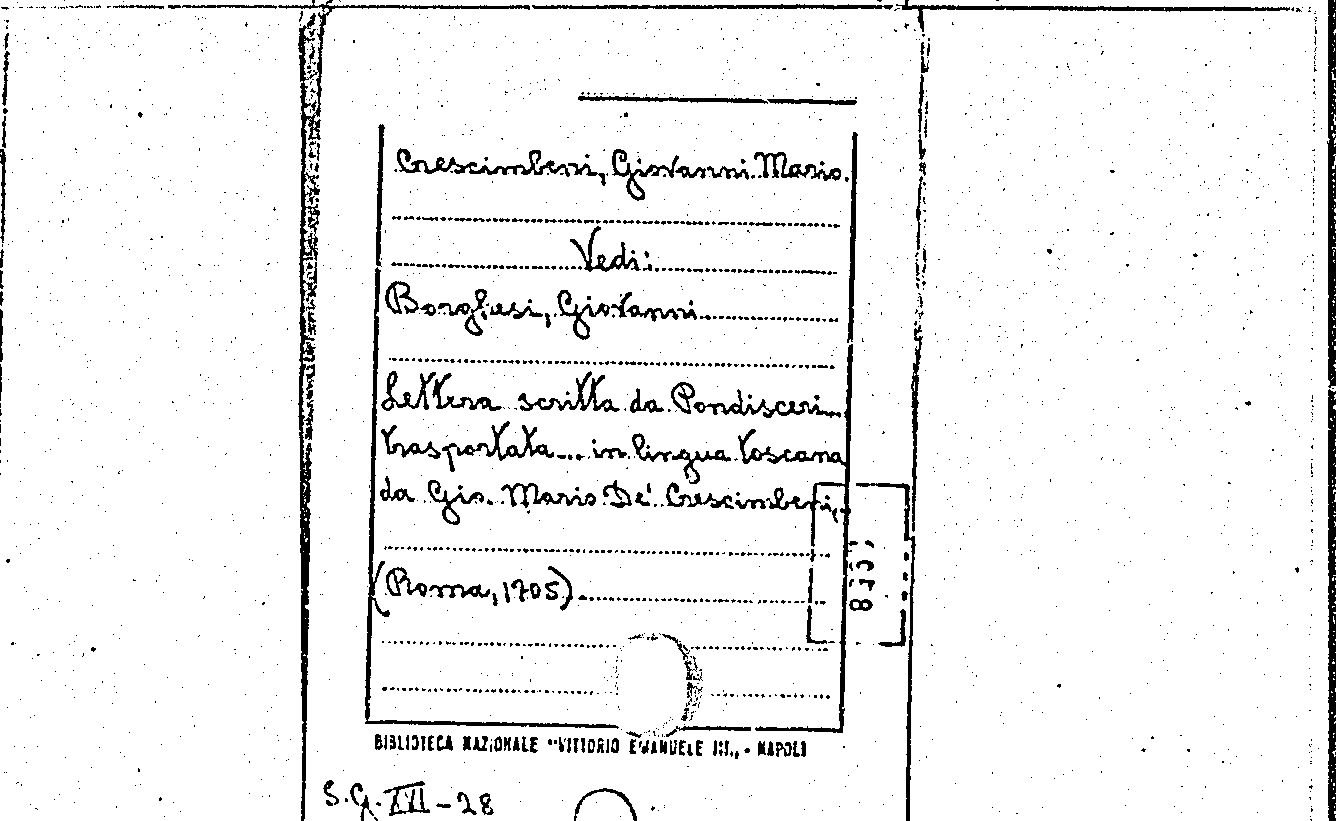 Crescimbeni, Giovanni Mario.
Vedi:
Borghesi, Giovanni
Lettera scritta da Pondisceri...
trasportata... in lingua toscana
da Gio. Mario De' Crescimbeni,..
(Roma, 1705)
BIBLIOTECA NAZIONALE "VITTORIO EMANUELE III„ - NAPOLI
S.Q. XVI - 28